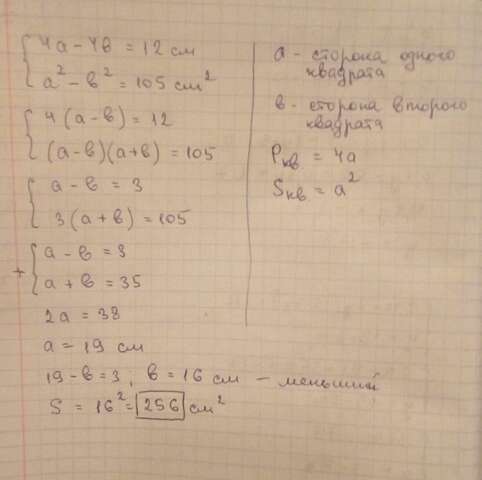 4a - 4в = 12 см
a² - в² = 105 см²
4(a - в) = 12
(a - в)(a + в) = 105
a - в = 3
3(a + в) = 105
+
a - в = 3
a + в = 35
2a = 38
a = 19 см
19 - в = 3, в = 16 см - меньший
S = 16² = 256 см²
a - сторона одного
квадрата
в - сторона второго
квадрата
Pкв = 4a
Sкв = a²